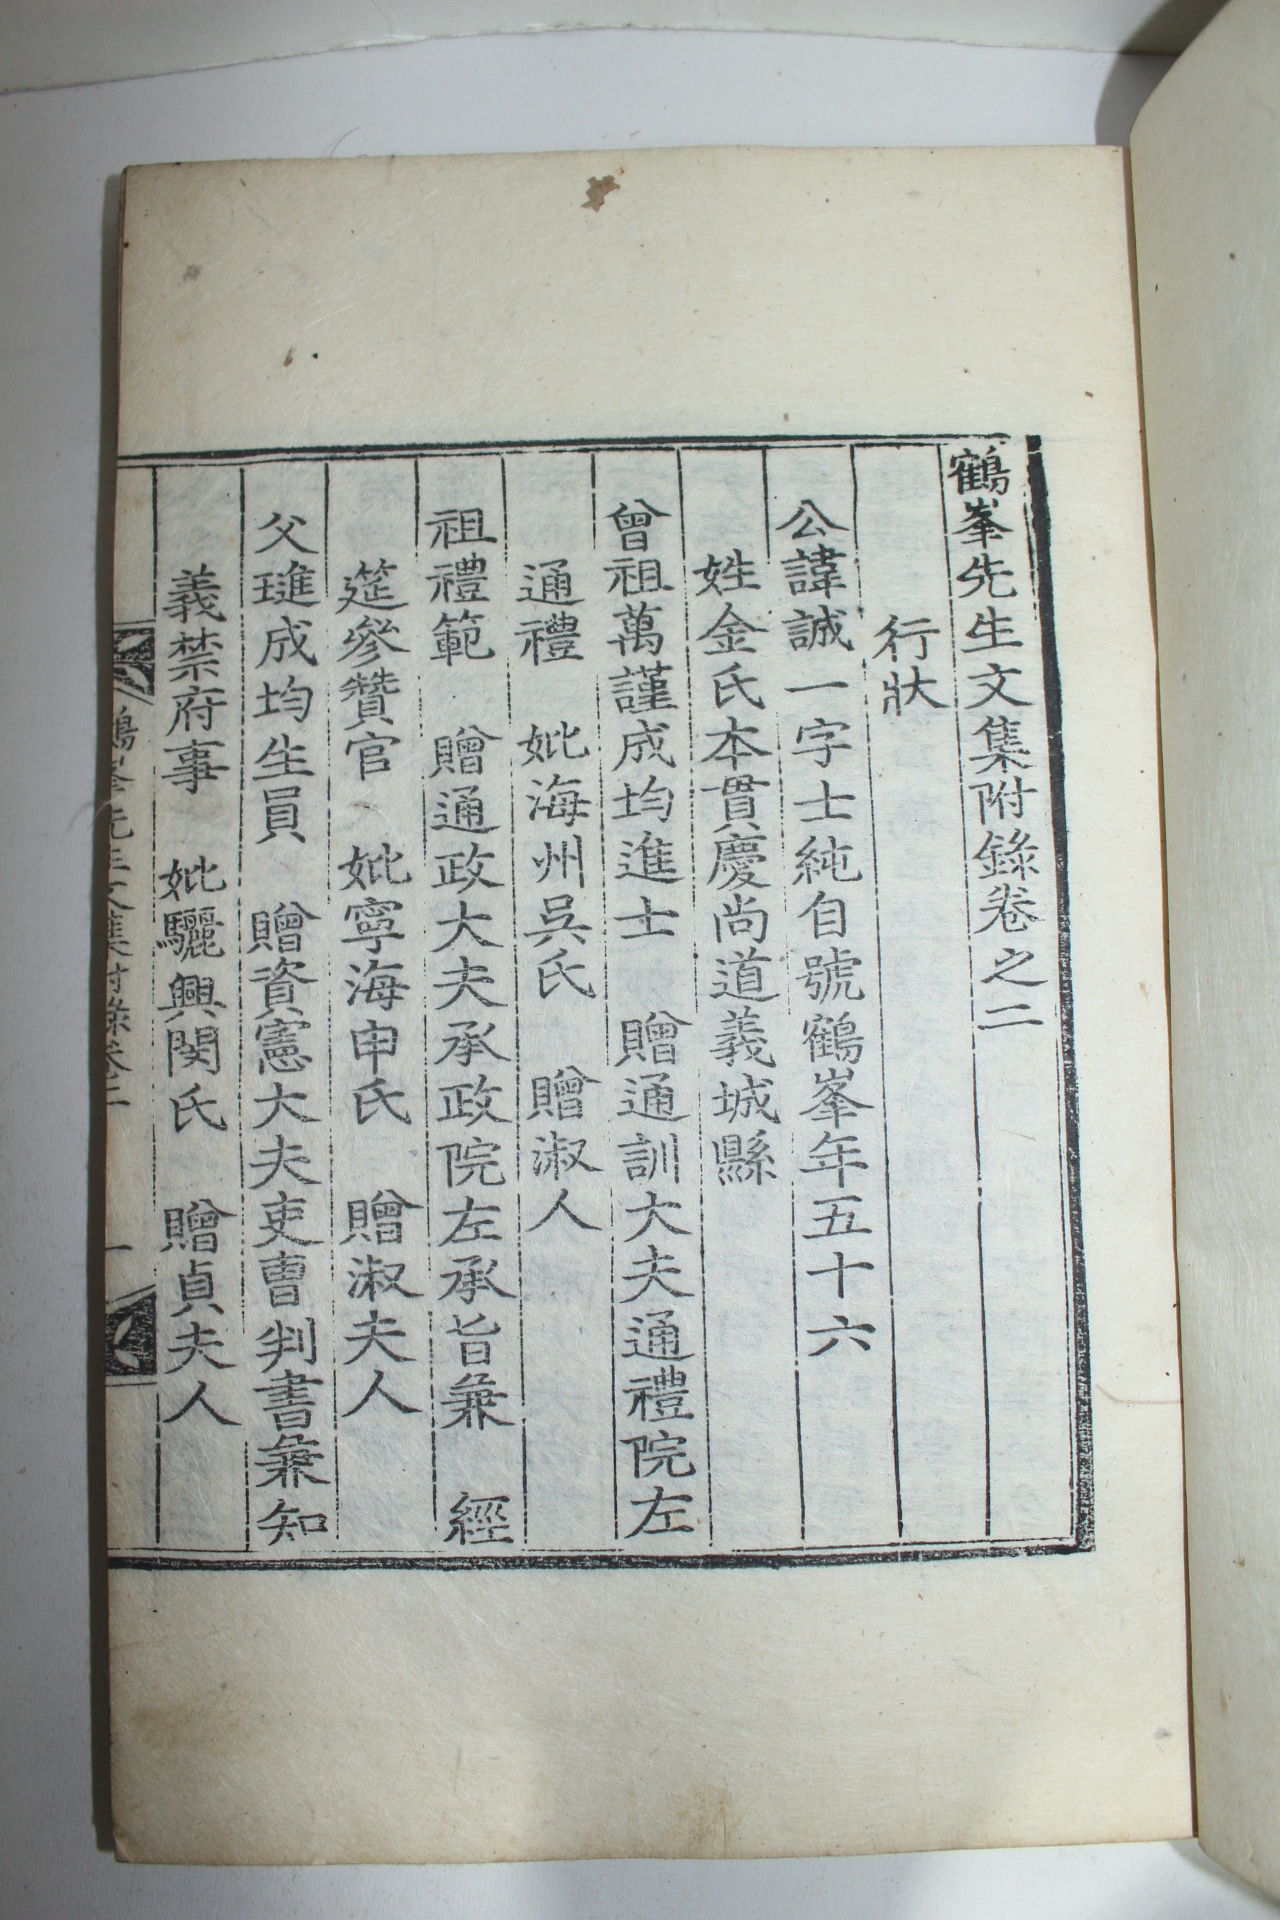 鶴峯先生文集附錄卷之二
行狀
公諱誠一字士純自號鶴峯年五十六
姓金氏本貫慶尚道義城縣
曾祖萬謹成均進士 贈通訓大夫通禮院左
通禮 妣海州吳氏 贈淑人
祖禮範 贈通政大夫承政院左承旨兼 經
筵參贊官 妣寧海申氏 贈淑夫人
父璡成均生員 贈資憲大夫吏曹判書兼知
義禁府事 妣驪興閔氏 贈貞夫人
鶴峯先生文集附錄卷二 一